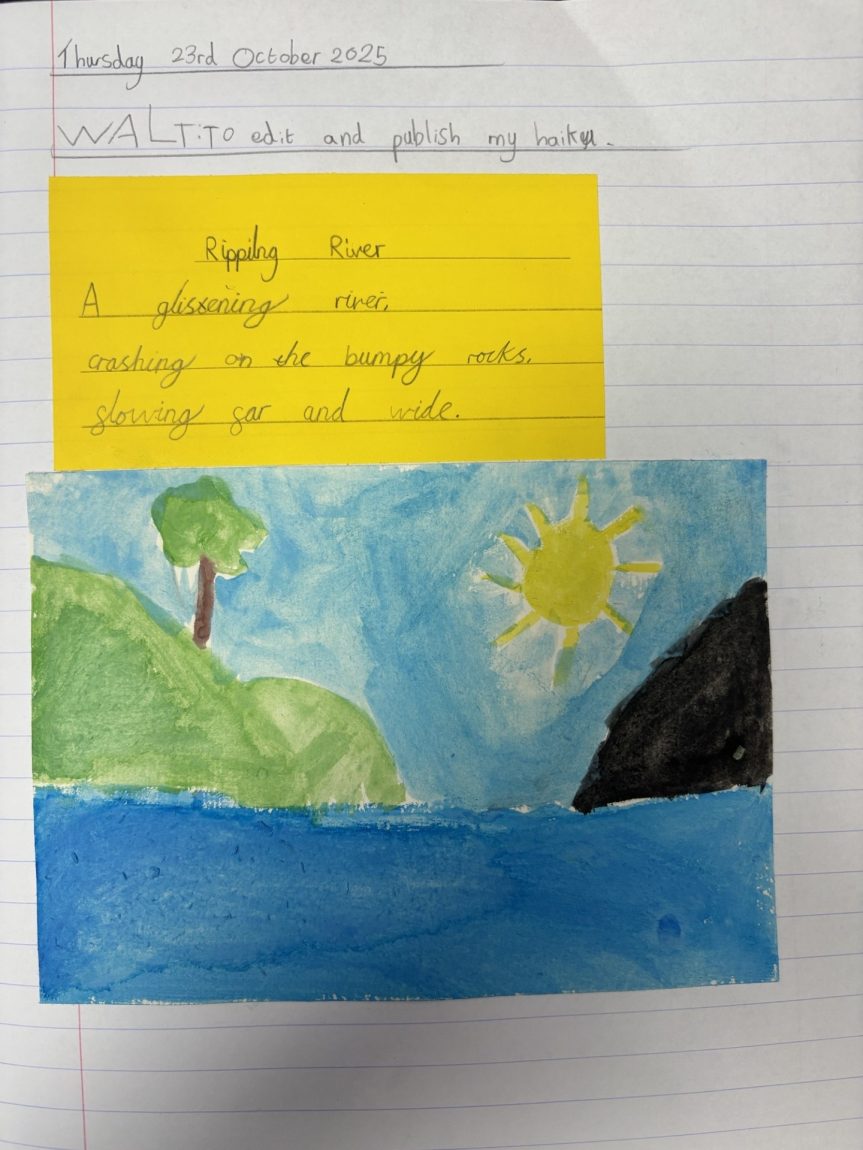 Thursday 23rd October 2025
WALT: TO edit and publish my haiku.
Rippilng River
A glistening river,
crashing on the bumpy rocks.
flowing far and wide.